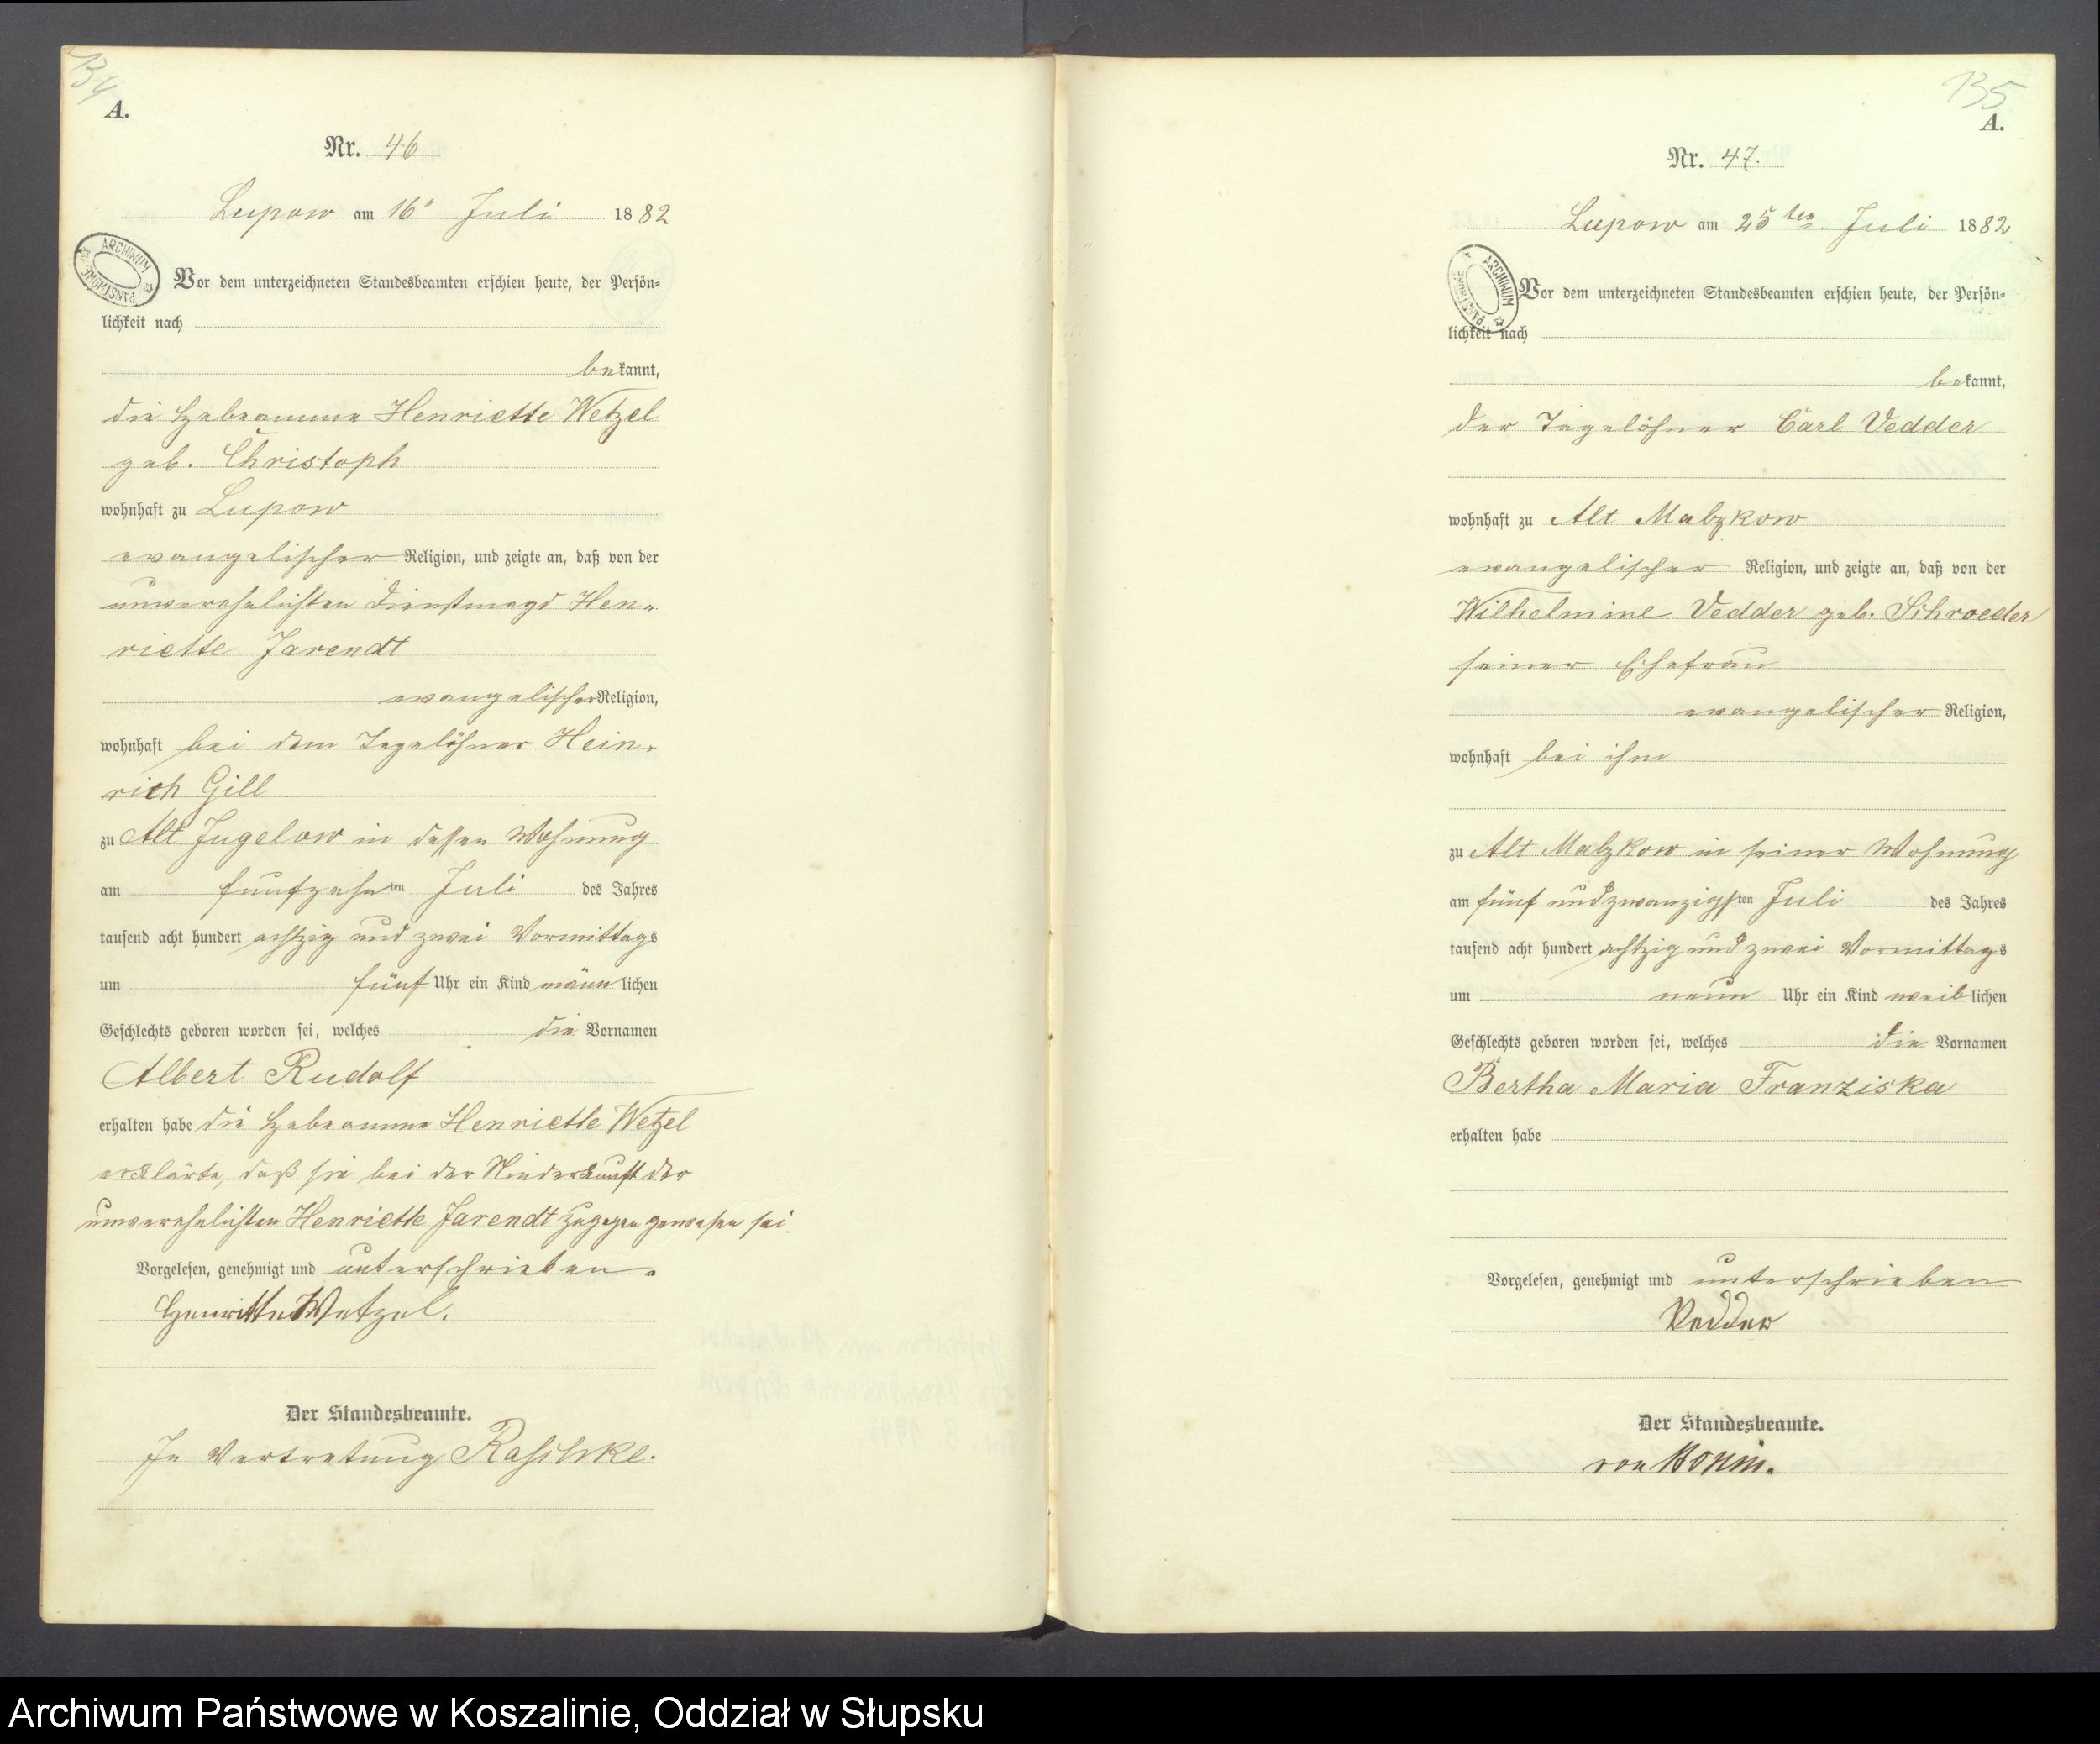 134
A.
Nr. 46
Lupow am 16" Juli 1882
ARCHIWUM PAŃSTWOWE
Vor dem unterzeichneten Standesbeamten erschien heute, der Persön-
lichkeit nach
bekannt,
die Hebeamme Henriette Wetzel
geb. Christoph
wohnhaft zu Lupow
evangelischer Religion, und zeigte an, daß von der
unverehelichten Dienstmagd Hen-
riette Jarendt
evangelischer Religion,
wohnhaft bei dem Tagelöhner Hein-
rich Gill
zu Alt Jugelow in dessen Wohnung
am fünfzehnten Juli des Jahres
tausend acht hundert achtzig und zwei Vormittags
um fünf Uhr ein Kind männlichen
Geschlechts geboren worden sei, welches die Vornamen
Albert Rudolf
erhalten habe die Hebeamme Henriette Wetzel
erklärte, daß sie bei der Niederkunft der
unverehelichten Henriette Jarendt zugegen gewesen sei.
Vorgelesen, genehmigt und unterschrieben.
Henriette Wetzel.
Der Standesbeamte.
In Vertretung Raschke.
135
A.
Nr. 47.
Lupow am 25ten Juli 1882
ARCHIWUM PAŃSTWOWE
Vor dem unterzeichneten Standesbeamten erschien heute, der Persön-
lichkeit nach
bekannt,
der Tagelöhner Carl Vedder
wohnhaft zu Alt Malzkow
evangelischer Religion, und zeigte an, daß von der
Wilhelmine Vedder geb. Schroeder
seiner Ehefrau
evangelischer Religion,
wohnhaft bei ihm
zu Alt Malzkow in seiner Wohnung
am fünf und zwanzigsten Juli des Jahres
tausend acht hundert achtzig und zwei Vormittags
um neun Uhr ein Kind weiblichen
Geschlechts geboren worden sei, welches die Vornamen
Bertha Maria Franziska
erhalten habe
Vorgelesen, genehmigt und unterschrieben
Vedder
Der Standesbeamte.
von Bonin.
Archiwum Państwowe w Koszalinie, Oddział w Słupsku